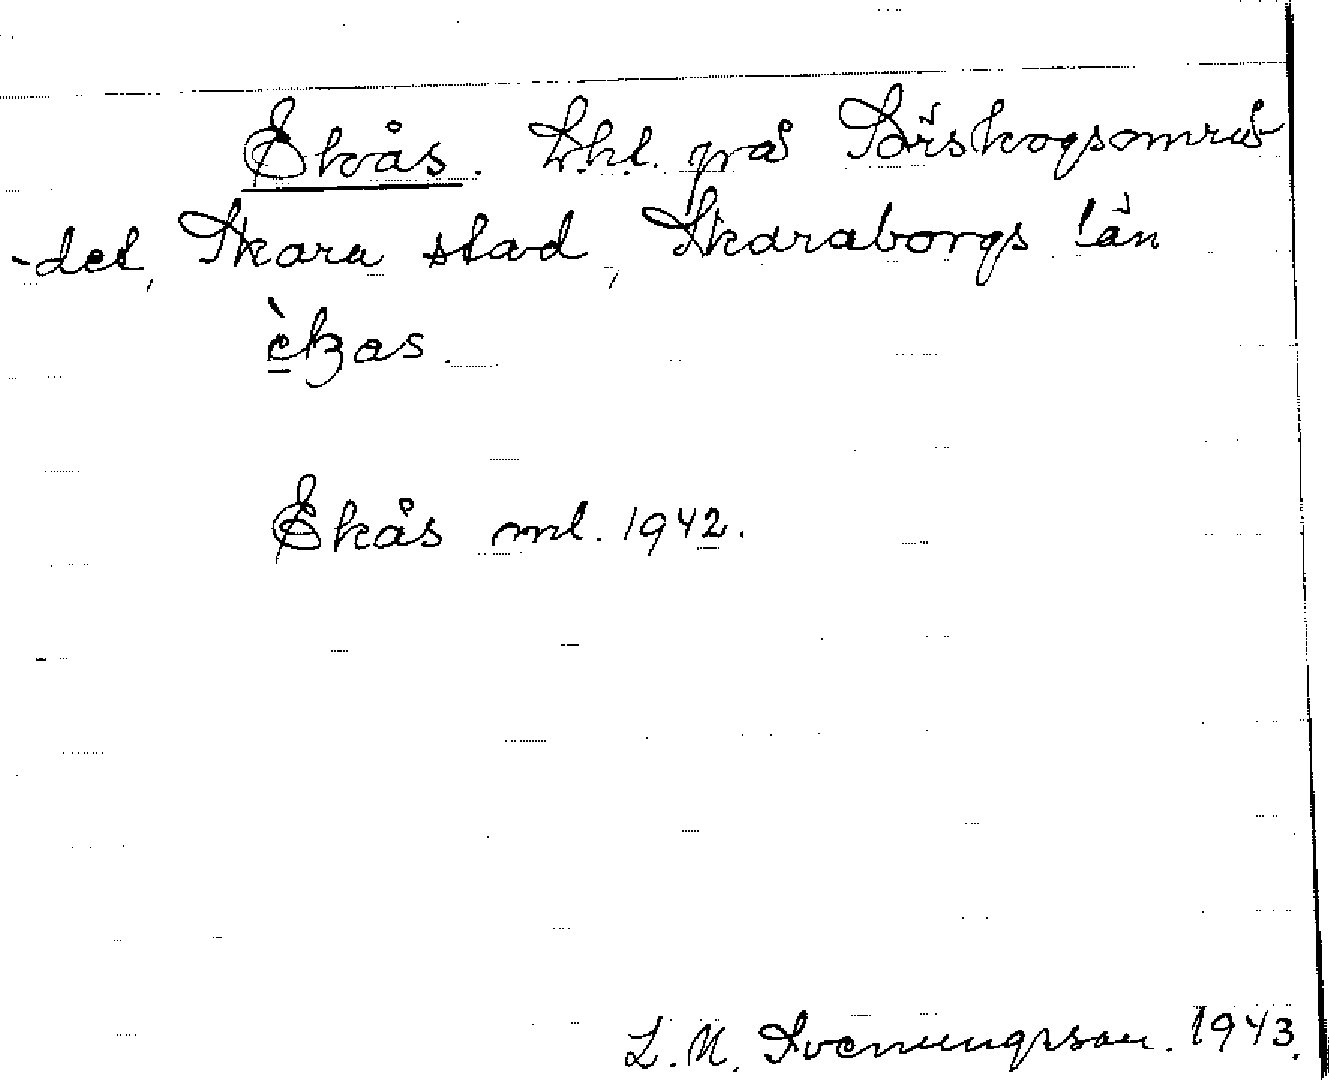 Ekås. Lkl. på Pärskogsområ-
-det, Skara stad, Skaraborgs län
èkas.
Ekås ml. 1942.
L. M. Svenungsson. 1943.